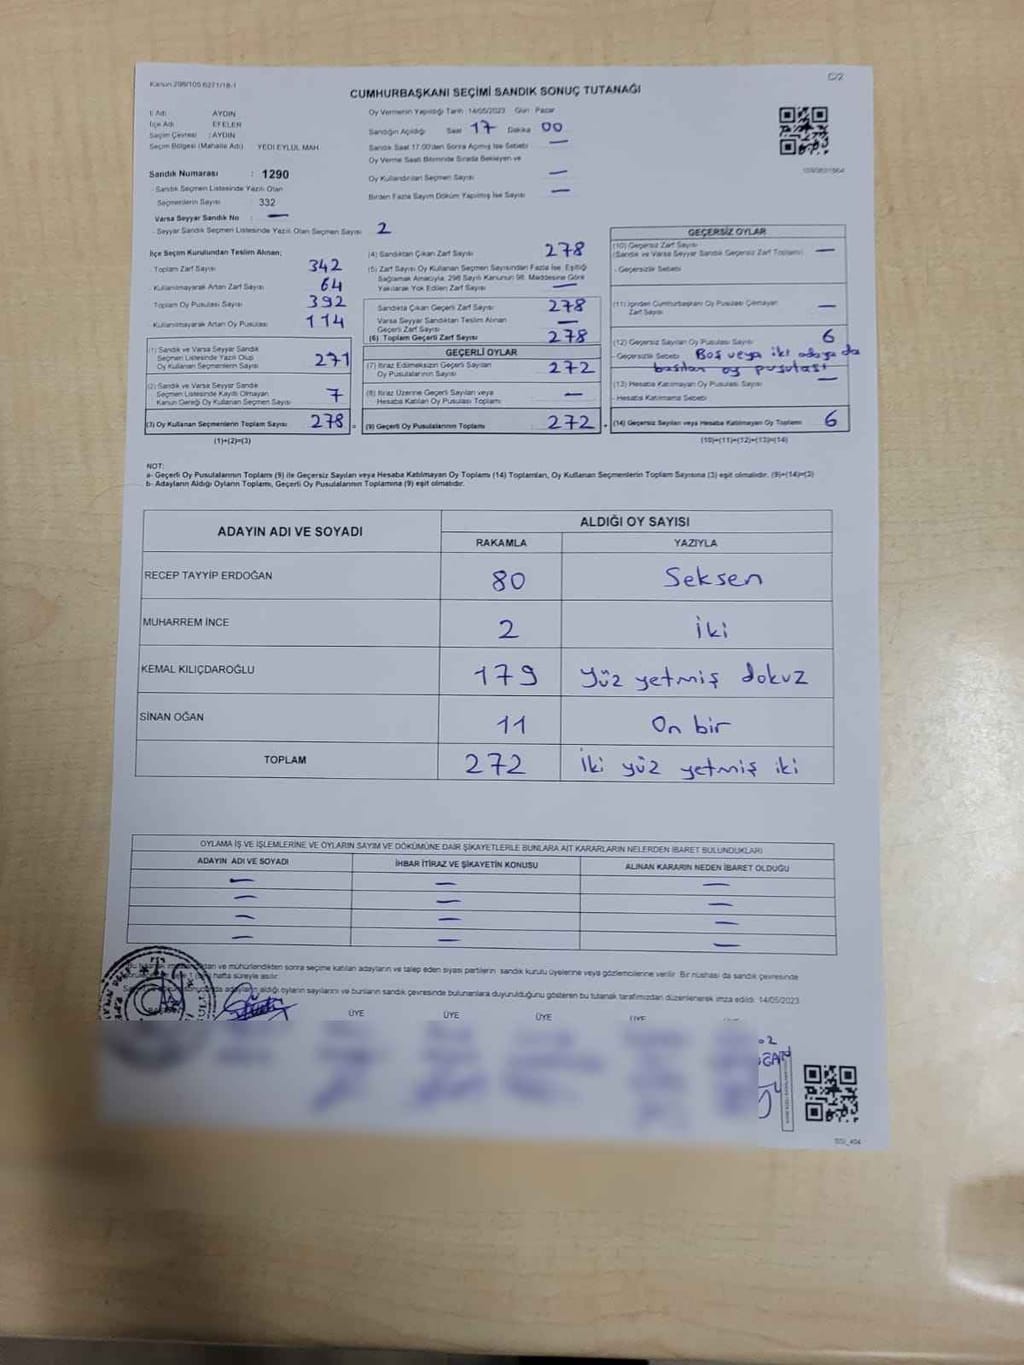 Kanun 298/105 6271/18-1
C/2
CUMHURBAŞKANI SEÇİMİ SANDIK SONUÇ TUTANAĞI
İl Adı AYDIN
İlçe Adı EFELER
Seçim Çevresi : AYDIN
Seçim Bölgesi (Mahalle Adı) YEDİ EYLÜL MAH.
Oy Vermenin Yapıldığı Tarih :14/05/2023 Gün : Pazar
Sandığın Açıldığı Saat 17 Dakika 00
Sandık Saat 17:00'den Sonra Açılmış İse Sebebi —
Oy Verme Saati Bitiminde Sırada Bekleyen ve
Oy Kullandırılan Seçmen Sayısı —
Birden Fazla Sayım Döküm Yapılmış İse Sayısı —
Sandık Numarası : 1290
- Sandık Seçmen Listesinde Yazılı Olan
Seçmenlerin Sayısı 332
Varsa Seyyar Sandık No : —
- Seyyar Sandık Seçmen Listesinde Yazılı Olan Seçmen Sayısı 2
İlçe Seçim Kurulundan Teslim Alınan;
- Toplam Zarf Sayısı 342
- Kullanılmayarak Artan Zarf Sayısı 64
- Toplam Oy Pusulası Sayısı 392
- Kullanılmayarak Artan Oy Pusulası 114
(1) Sandık ve Varsa Seyyar Sandık
Seçmen Listesinde Yazılı Olup
Oy Kullanan Seçmenlerin Sayısı 271
(2) Sandık ve Varsa Seyyar Sandık
Seçmen Listesinde Kayıtlı Olmayan
Kanun Gereği Oy Kullanan Seçmen Sayısı 7
(3) Oy Kullanan Seçmenlerin Toplam Sayısı 278 =
(1)+(2)=(3)
(4) Sandıktan Çıkan Zarf Sayısı 278
(5) Zarf Sayısı Oy Kullanan Seçmen Sayısından Fazla İse, Eşitliği
Sağlamak Amacıyla, 298 Sayılı Kanunun 98. Maddesine Göre
Yakılarak Yok Edilen Zarf Sayısı —
Sandıkta Çıkan Geçerli Zarf Sayısı 278
Varsa Seyyar Sandıktan Teslim Alınan
Geçerli Zarf Sayısı —
(6) Toplam Geçerli Zarf Sayısı 278
GEÇERLİ OYLAR
(7) İtiraz Edilmeksizin Geçerli Sayılan
Oy Pusulalarının Sayısı 272
(8) İtiraz Üzerine Geçerli Sayılan veya
Hesaba Katılan Oy Pusulası Toplamı —
(9) Geçerli Oy Pusulalarının Toplamı 272 +
GEÇERSİZ OYLAR
(10) Geçersiz Zarf Sayısı
(Sandık ve Varsa Seyyar Sandık Geçersiz Zarf Toplamı) —
- Geçersizlik Sebebi
(11) İçinden Cumhurbaşkanı Oy Pusulası Çıkmayan
Zarf Sayısı —
(12) Geçersiz Sayılan Oy Pusulası Sayısı 6
- Geçersizlik Sebebi Boş veya iki adaya da
basılan oy pusulası
(13) Hesaba Katılmayan Oy Pusulası Sayısı —
- Hesaba Katılmama Sebebi
(14) Geçersiz Sayılan veya Hesaba Katılmayan Oy Toplamı 6
(10)+(11)+(12)+(13)=(14)
NOT:
a- Geçerli Oy Pusulalarının Toplamı (9) ile Geçersiz Sayılan veya Hesaba Katılmayan Oy Toplamı (14) Toplamları, Oy Kullanan Seçmenlerin Toplam Sayısına (3) eşit olmalıdır. (9)+(14)=(3)
b- Adayların Aldığı Oyların Toplamı, Geçerli Oy Pusulalarının Toplamına (9) eşit olmalıdır.
ADAYIN ADI VE SOYADI
ALDIĞI OY SAYISI
RAKAMLA YAZIYLA
RECEP TAYYİP ERDOĞAN 80 Seksen
MUHARREM İNCE 2 İki
KEMAL KILIÇDAROĞLU 179 Yüz yetmiş dokuz
SİNAN OĞAN 11 On bir
TOPLAM 272 İki yüz yetmiş iki
OYLAMA İŞ VE İŞLEMLERİNE VE OYLARIN SAYIM VE DÖKÜMÜNE DAİR ŞİKAYETLERLE BUNLARA AİT KARARLARIN NELERDEN İBARET BULUNDUKLARI
ADAYIN ADI VE SOYADI İHBAR İTİRAZ VE ŞİKAYETİN KONUSU ALINAN KARARIN NEDEN İBARET OLDUĞU
— — —
— — —
— — —
— — —
ve mühürlendikten sonra seçime katılan adayların ve talep eden siyasi partilerin sandık kurulu üyelerine veya gözlemcilerine verilir. Bir nüshası da sandık çevresinde
hafta süreyle asılır.
adayların aldığı oyların sayılarını ve bunların sandık çevresinde bulunanlara duyurulduğunu gösteren bu tutanak tarafımızdan düzenlenerek imza edildi. 14/05/2023
ÜYE ÜYE ÜYE